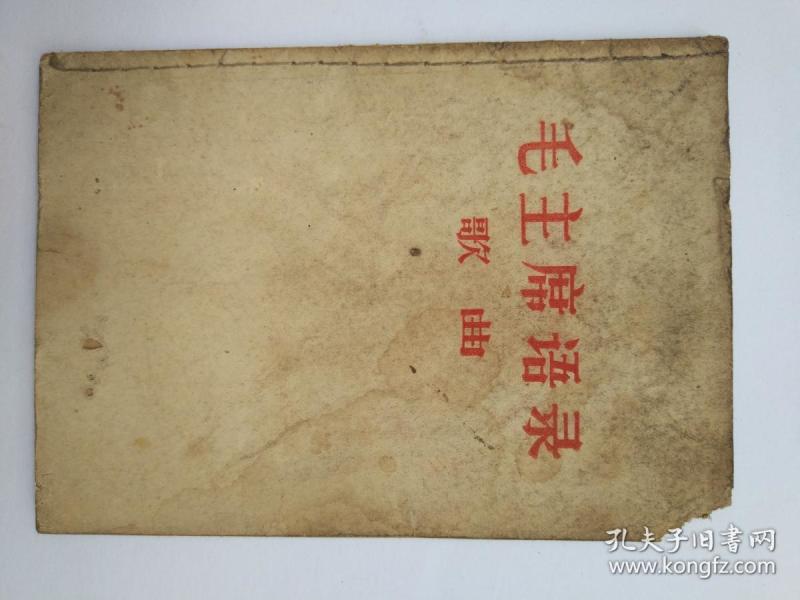 毛主席语录
歌曲
孔夫子旧書网
www.kongfz.com